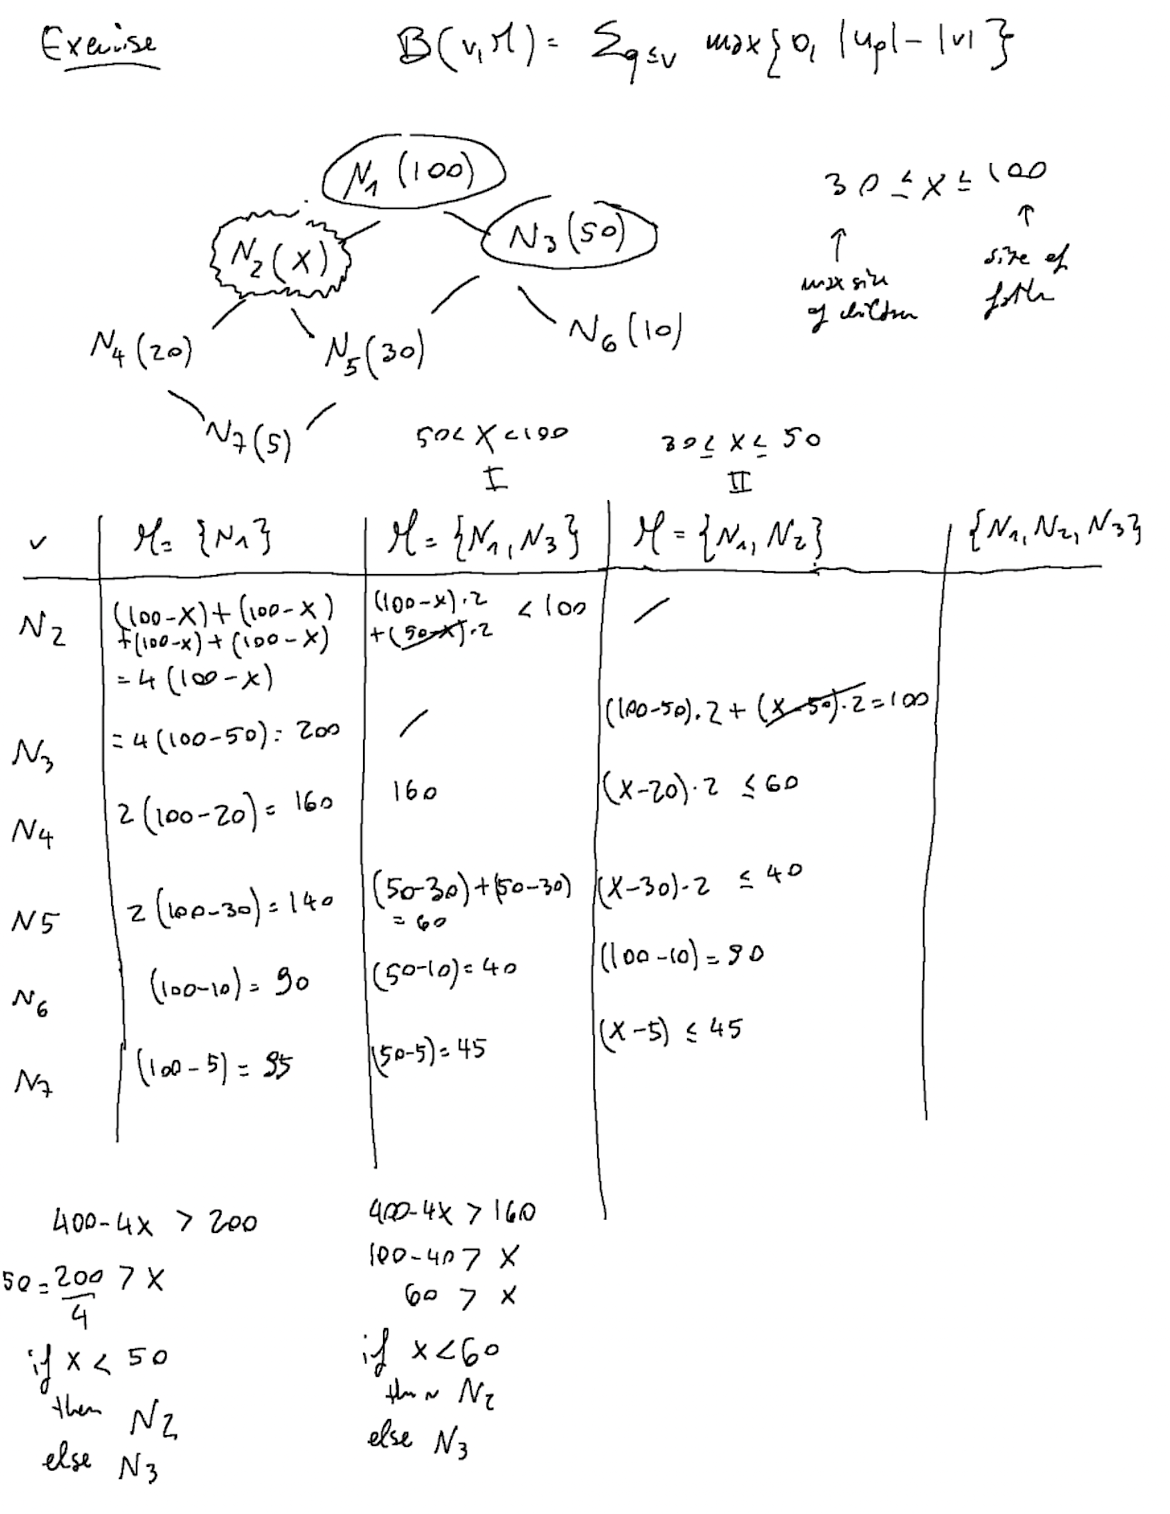 Exercise
B(v, M) = Σq≤v max{0, |up| - |v|}
N1 (100)
30 ≤ x ≤ 100
N2 (x)
N3 (50)
↑ ↑
max size of children
size of father
N4 (20)
N5 (30)
N6 (10)
N7 (5)
50 < x < 100
I
30 ≤ x ≤ 50
II
v
M = {N1}
M = {N1, N3}
M = {N1, N2}
{N1, N2, N3}
N2
(100-x)+(100-x)
+(100-x)+(100-x)
= 4(100-x)
(100-x)·2 < 100
+(50-x)·2
/
N3
= 4(100-50) = 200
/
(100-50)·2 + (x-50)·2 = 100
N4
2(100-20) = 160
160
(x-20)·2 ≤ 60
N5
2(100-30) = 140
(50-30)+(50-30)
= 60
(x-30)·2 ≤ 40
N6
(100-10) = 90
(50-10) = 40
(100-10) = 90
N7
(100-5) = 95
(50-5) = 45
(x-5) ≤ 45
400-4x > 200
50 = 200/4 > x
if x < 50
then N2
else N3
400-4x > 160
100-40 > x
60 > x
if x < 60
then N2
else N3